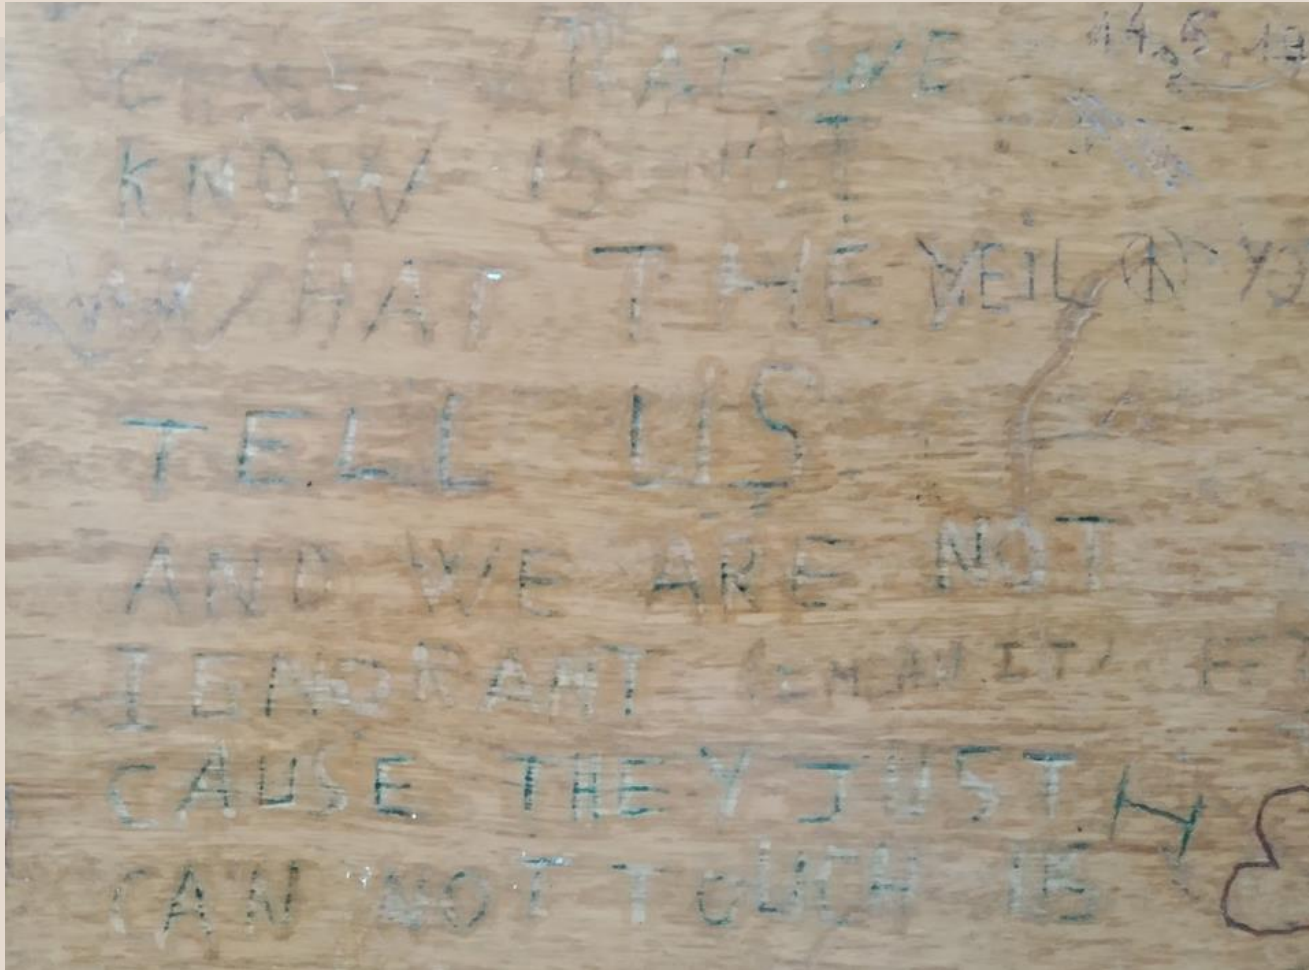 THAT WE
KNOW IS NOT
WHAT THE VEIL
TELL US
AND WE ARE NOT
IGNORANT
CAUSE THEY JUST
CAN NOT TOUCH